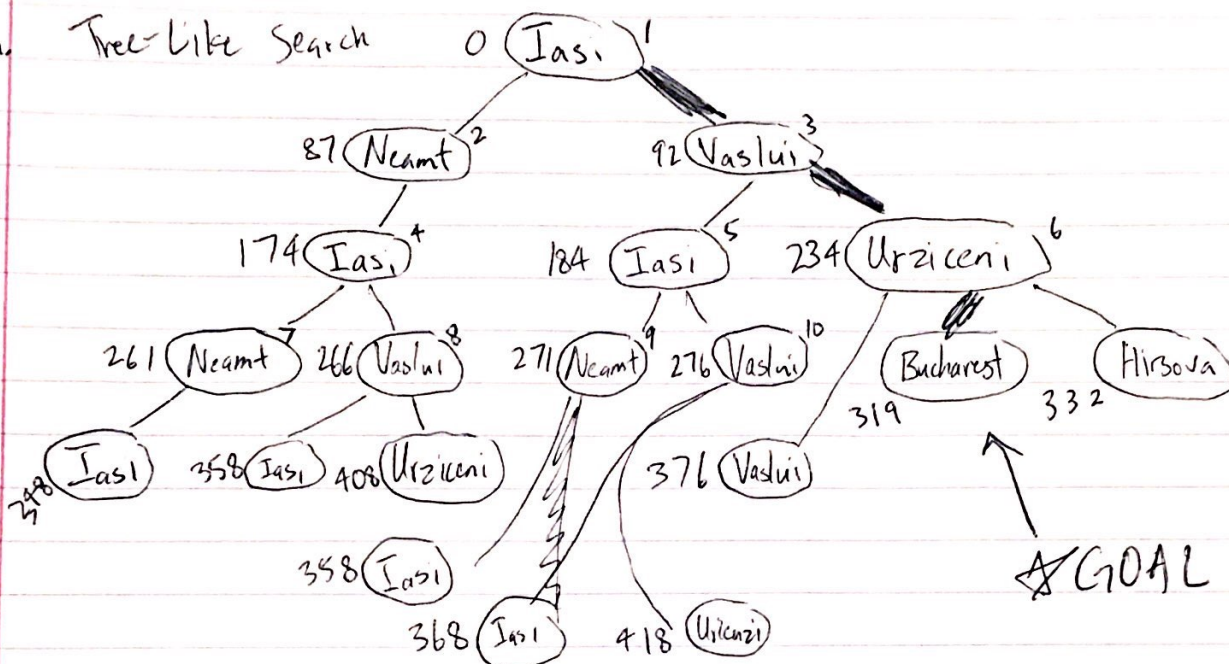 Tree-Like Search
0 Iasi 1
87 Neamt 2
92 Vaslui 3
174 Iasi 4
184 Iasi 5
234 Urziceni 6
261 Neamt 7
266 Vaslui 8
271 Neamt 9
276 Vaslui 10
Bucharest
319
Hirsova
332
348 Iasi
358 Iasi
408 Urziceni
376 Vaslui
358 Iasi
GOAL
368 Iasi
418